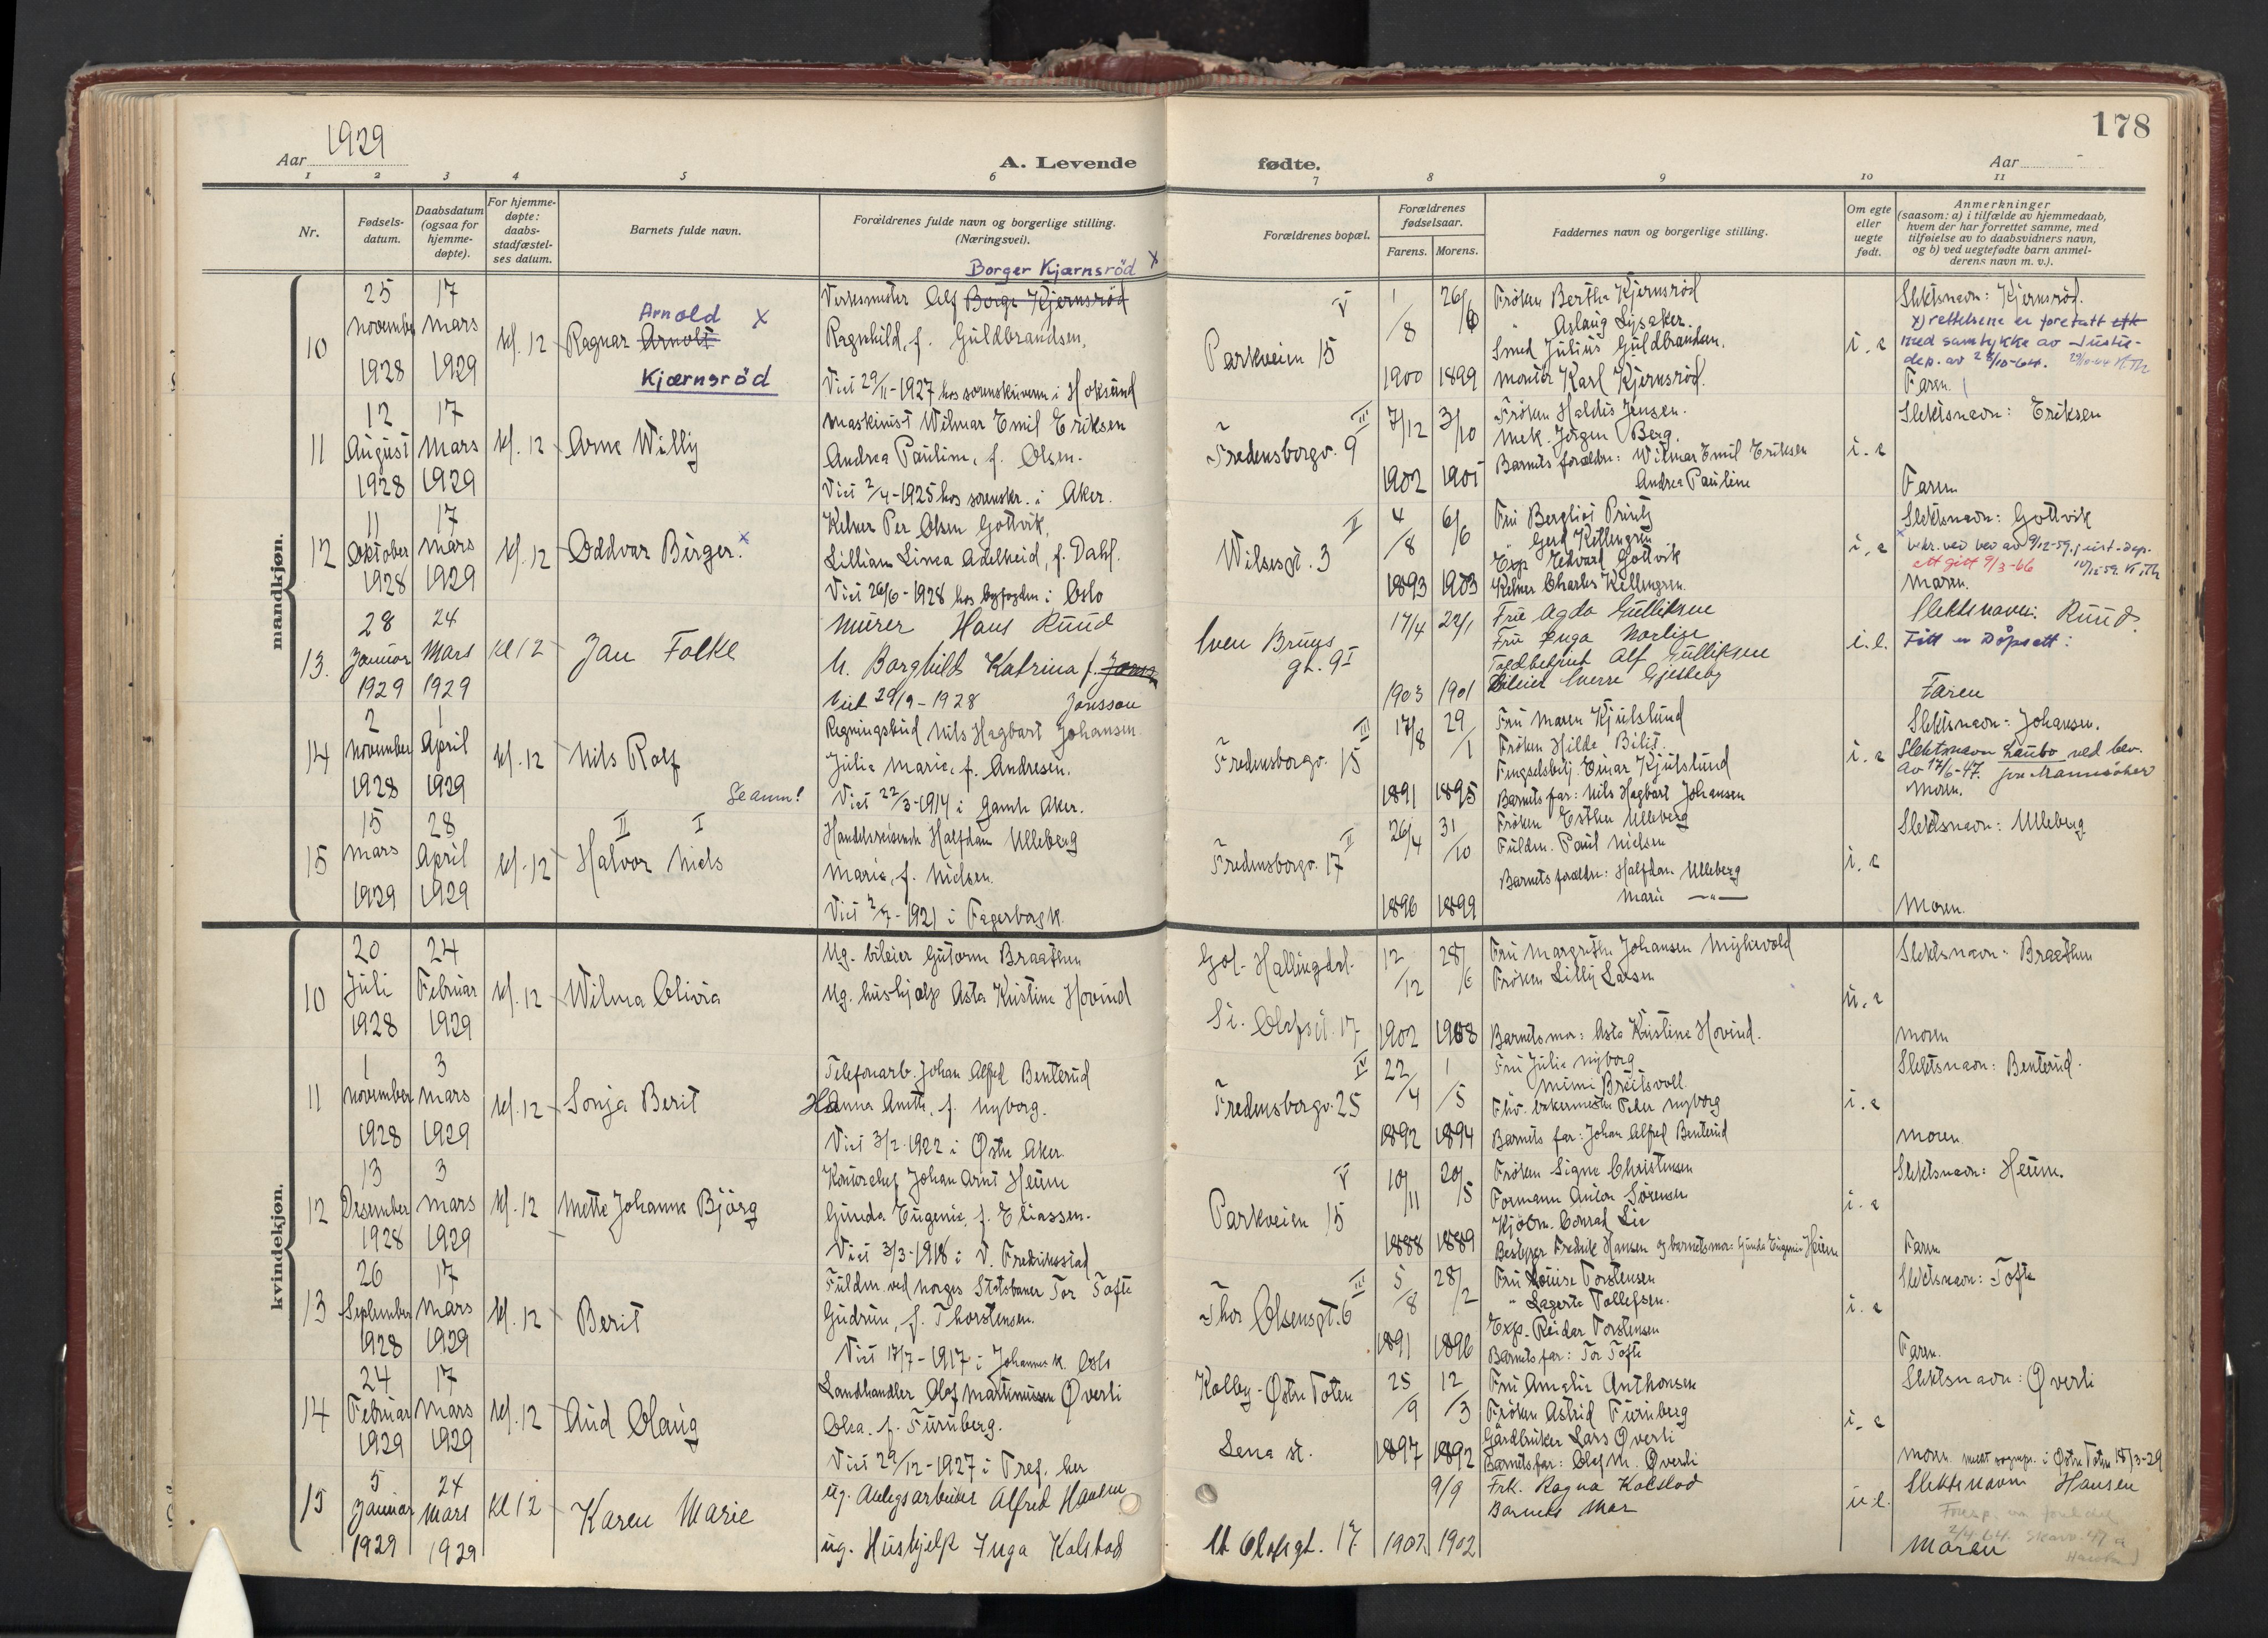 178
Aar 1929
A. Levende fødte.
Aar
1 2 3 4 5 6 7 8 9 10 11
Nr.
Fødsels-
datum.
Daabsdatum
(ogsaa for
hjemme-
døpte).
For hjemme-
døpte:
daabs-
stadfæstel-
ses datum.
Barnets fulde navn.
Forældrenes fulde navn og borgerlige stilling.
(Næringsvei).
Forældrenes bopæl.
Forældrenes
fødselsaar.
Farens. Morens.
Faddernes navn og borgerlige stilling.
Om egte
eller
uegte
født.
Anmerkninger
(saasom: a) i tilfælde av hjemmedaab,
hvem der har forrettet samme, med
tilføielse av to daabsvidners navn,
og b) ved uegtefødte barn anmel-
derens navn m. v.).
mandkjøn.
10
25 november 1928
17 mars 1929
kl. 12
Ragnar Arnolt
Arnold x
Kjærnsröd
Borger Kjærnsröd x
Alf Borge Kjernsröd
Ragnhild, f. Guldbrandsen,
Viet 29/11-1927 hos sorenskriveren i Hoksund
Parkveien 15 V
1/8 1900
26/6 1899
Fröken Bertha Kjernsröd
" Aslaug Lysaker.
Smed Julius Guldbrandsen.
montör Karl Kjernsröd.
i. e
Slektsnavn: Kjernsröd.
x) rettelsene er foretatt etk
med samtykke av Justis-
dep. av 28/10-64.
Faren.
11
12 August 1928
17 mars 1929
kl. 12
Arne Willy
maskinist Wilmar Emil Eriksen
Andrea Pauline, f. Olsen.
Viet 2/4-1925 hos sorenskr. i Aker.
Fredensborgv. 9 III
7/12 1902
3/10 1905
Fröken Haldis Jensen.
mek. Jörgen Berg.
Barnets forældre: Wilmar Emil Eriksen
Andrea Pauline
i. e
Slektsnavn: Eriksen
Faren
12
11 Oktober 1928
17 mars 1929
kl. 12
Oddvar Birger. x
Kelner Per Olsen Gottvik,
Lillian Linea Adelheid, f. Dahl.
Viet 26/6-1928 hos byfogden i Oslo
Wilsesgt. 3 II
4/8 1893
6/6 1903
Fru Bergliot Printz
" Gerd Kellengren
Exp. Edvard Gottvik
Kelner Charles Kellengren.
i. e
Slektsnavn: Gottvik
att gitt 9/3-66
moren.
13.
28 Januar 1929
24 Mars 1929
kl 12
Jan Folke
Murer Hans Ruud
h. Borghild Katrina f. Jans
Jonsson
Viet 29/9-1928
Sven Bruns
gt. 9 I
17/4 1903
22/1 1901
Frue Agda Gulliksen
Fru Inga Norlise
Toldbetjent Alf Gulliksen
Bileier Sverre Gjelleby
i. e.
Slektsnavn: Ruud.
Fått ny Dåpsatt:
Faren
14
2 November 1928
1 April 1929
kl. 12
Nils Rolf
Se anm!
Regningsbud Nils Hagbart Johansen
Julia Marie, f. Andresen.
Viet 22/3-1914 i Gamle Aker.
Fredensborgv. 15 III
17/8 1891
29/1 1895
Fru Maren Kjulslund
Fröken Hilda Bilit.
Fengselsbetj. Einar Kjulslund
Barnets far: Nils Hagbart Johansen
i. e
Slektsnavn: Johansen.
Slektsnavn Laubo ved bev.
av 17/6-47.
Moren.
15
15 mars 1929
28 April 1929
kl. 12
II I
Halvor Niels
Handelsreisende Halfdan Ulleberg
Marie, f. Nielsen.
Viet 2/7-1921 i Fagerborg k.
Fredensborgv. 17 II
26/4 1896
31/10 1899
Fröken Esther Ulleberg
Fuldm. Paul Nielsen
Barnets forældre: Halfdan Ulleberg
Marie —"—
i. e
Slektsnavn: Ulleberg
Moren.
kvindekjøn.
10
20 Juli 1928
24 Februar 1929
kl. 12
Wilma Olivia
Ug. bileier Gutorm Braathen
Ug. hushjælp Asta Kristine Hovind
Gol-Hallingdal.
St. Olafsgt. 17
12/12 1902
28/6 1908
Fru Margrethe Johansen Myhrvold
Fröken Lilly Larsen
Barnets mor: Asta Kristine Hovind.
u. e
Slektsnavn: Braathen
moren
11
1 november 1928
3 mars 1929
kl. 12
Sonja Berit
Telefonarb. Johan Alfred Benterud
Hanna Anette, f. Nyborg.
Viet 3/2-1922 i Østre Aker.
Fredensborgv. 25 IV
22/4 1892
1/5 1894
Fru Julia Nyborg
" Mimi Breitsvoll.
Fhv. bakermester Peder Nyborg
Barnets far: Johan Alfred Benterud
i. e
Slektsnavn: Benterud.
moren.
12
13 Desember 1928
3 mars 1929
kl. 12
Mette Johanne Bjørg
Kontorchef Johan Arnt Heum
Gunda Eugenie, f. Eliassen.
Viet 3/3-1918 i V. Fredriksstad
Parkveien 15 V
10/11 1888
20/5 1889
Fröken Signe Christensen
Formann Anton Sörensen
Kjöbm. Conrad Lie
Bestyrer Fredrik Hansen og barnets mor: Gunda Eugenie Heum
i. e
Slektsnavn: Heum.
Faren
13
26 September 1928
17 mars 1929
kl. 12
Berit
Fuldm. ved Norges Statsbaner Tor Tofte
Gudrun, f. Thorstensen.
Viet 17/7-1917 i Johannes k. Oslo
Thor Olsensgt. 6 III
5/8 1891
28/2 1896
Fru Louise Torstensen
" Lagerta Tollefsen.
Exp. Reidar Torstensen
Barnets far: Tor Tofte
i. e
Slektsnavn: Tofte
Faren.
14
24 Februar 1929
17 mars 1929
kl. 12
Aud Olaug
Landhandler Olaf Martinussen Øverli
Olea, f. Furuberg.
Viet 29/12-1927 i Tref. her
Kolby - Østre Toten
Lena st.
25/9 1897
12/3 1892
Fru Amalie Anthonsen
Fröken Astrid Furuberg
Gårdbruker Lars Øverli
Barnets far: Olaf M. Øverli
i. e
Slektsnavn: Øverli
moren. meldt sognepr. i Østre Toten 18/3-29
15
5 Januar 1929
24 Mars 1929
kl 12
Karen Marie
ug. Anlegsarbeider Alfred Hansen
ug. Hushjelp Inga Kalstad
St. Olafsgt. 17.
1902
9/9 1902
Frk. Ragna Kalstad
Barnets Mor
u e.
Slektsnavn Hansen
2/4 64.
Moren